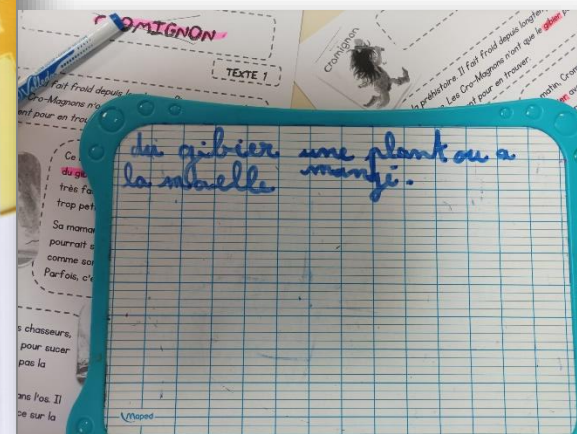 CROMIGNON
TEXTE 1
fait froid depuis
Cro-Magnons n'o
ent pour en trou
Ce
du gi
très fa
trop pet
Sa mama
pourrait s
comme son
Parfois, c'e
s chasseurs,
pour sucer
pas la
ans l'os. Il
ce sur la
Cromignon
la préhistoire. Il fait froid depuis longte
Les Cro-Magnons n'ont que le gibier
ent pour en trouver.
matin, Crom
du gibier une plant ou a
la moelle mangi.
Maped